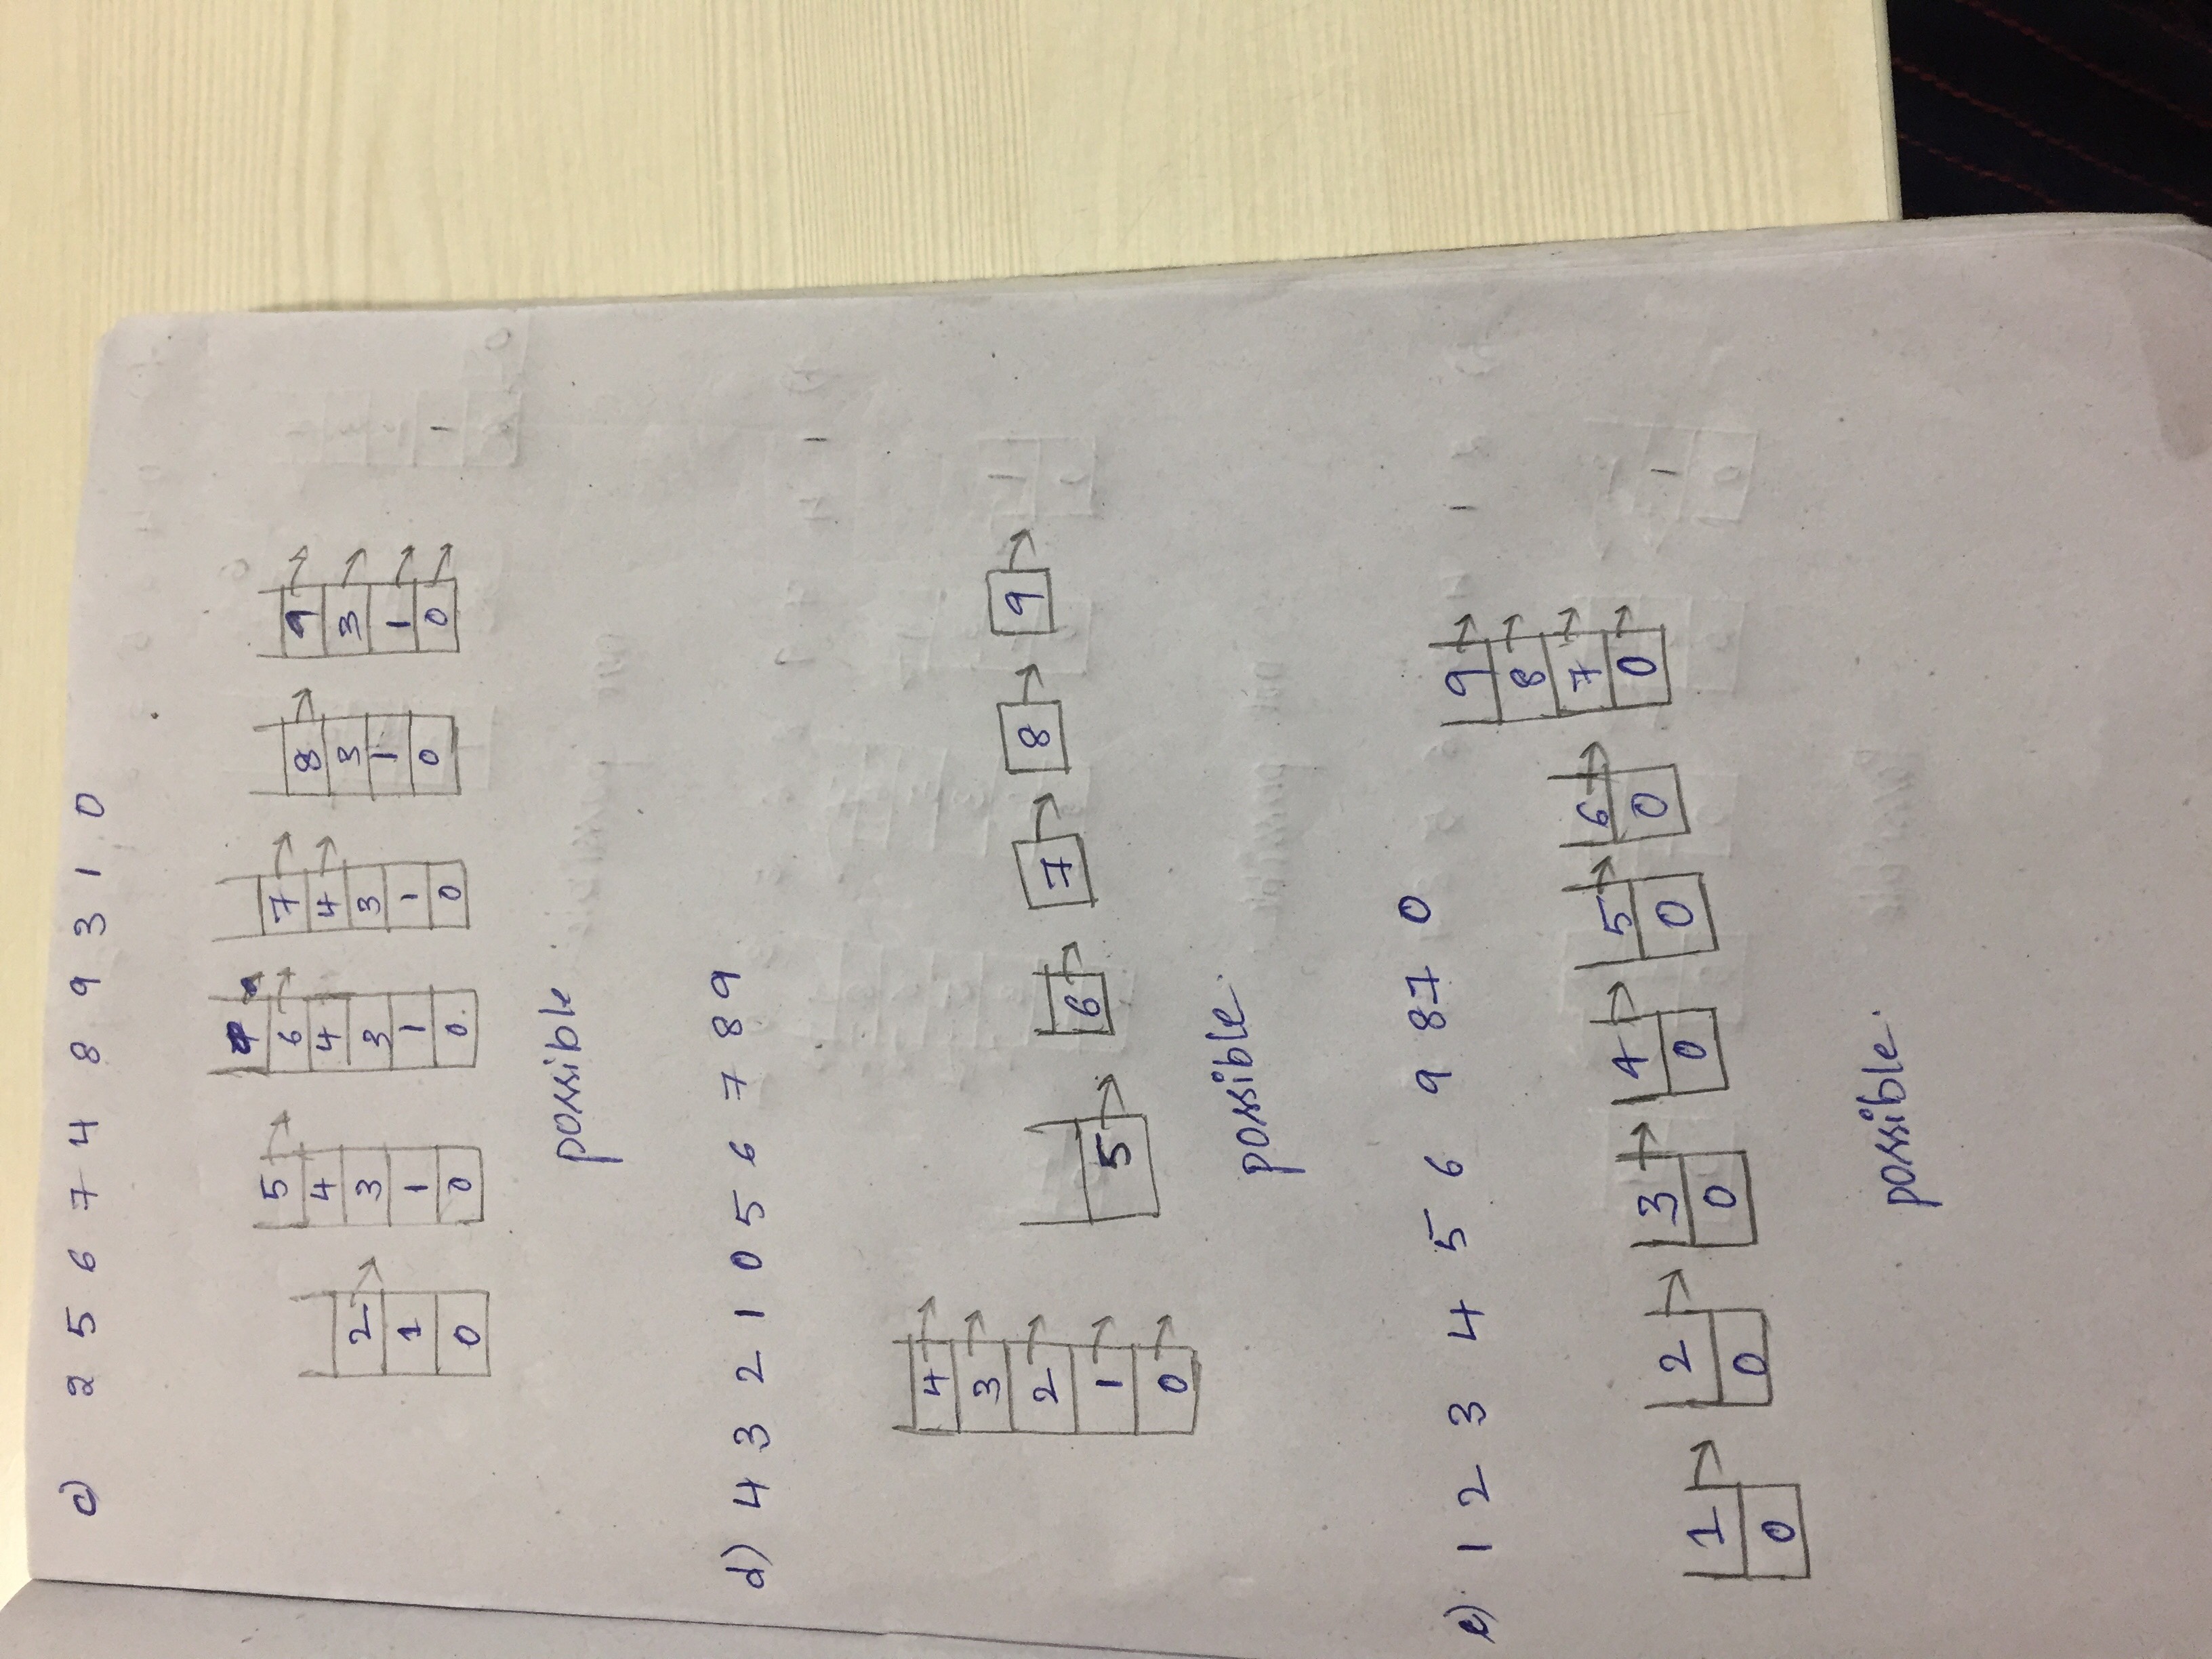 c) 2 5 6 7 4 8 9 3 1 0
2 1 0
5 4 3 1 0
6 4 3 1 0
7 4 3 1 0
8 3 1 0
9 3 1 0
possible
d) 4 3 2 1 0 5 6 7 8 9
4 3 2 1 0
5
6
7
8
9
possible.
e) 1 2 3 4 5 6 9 8 7 0
1 0
2 0
3 0
4 0
5 0
6 0
9 8 7 0
possible.